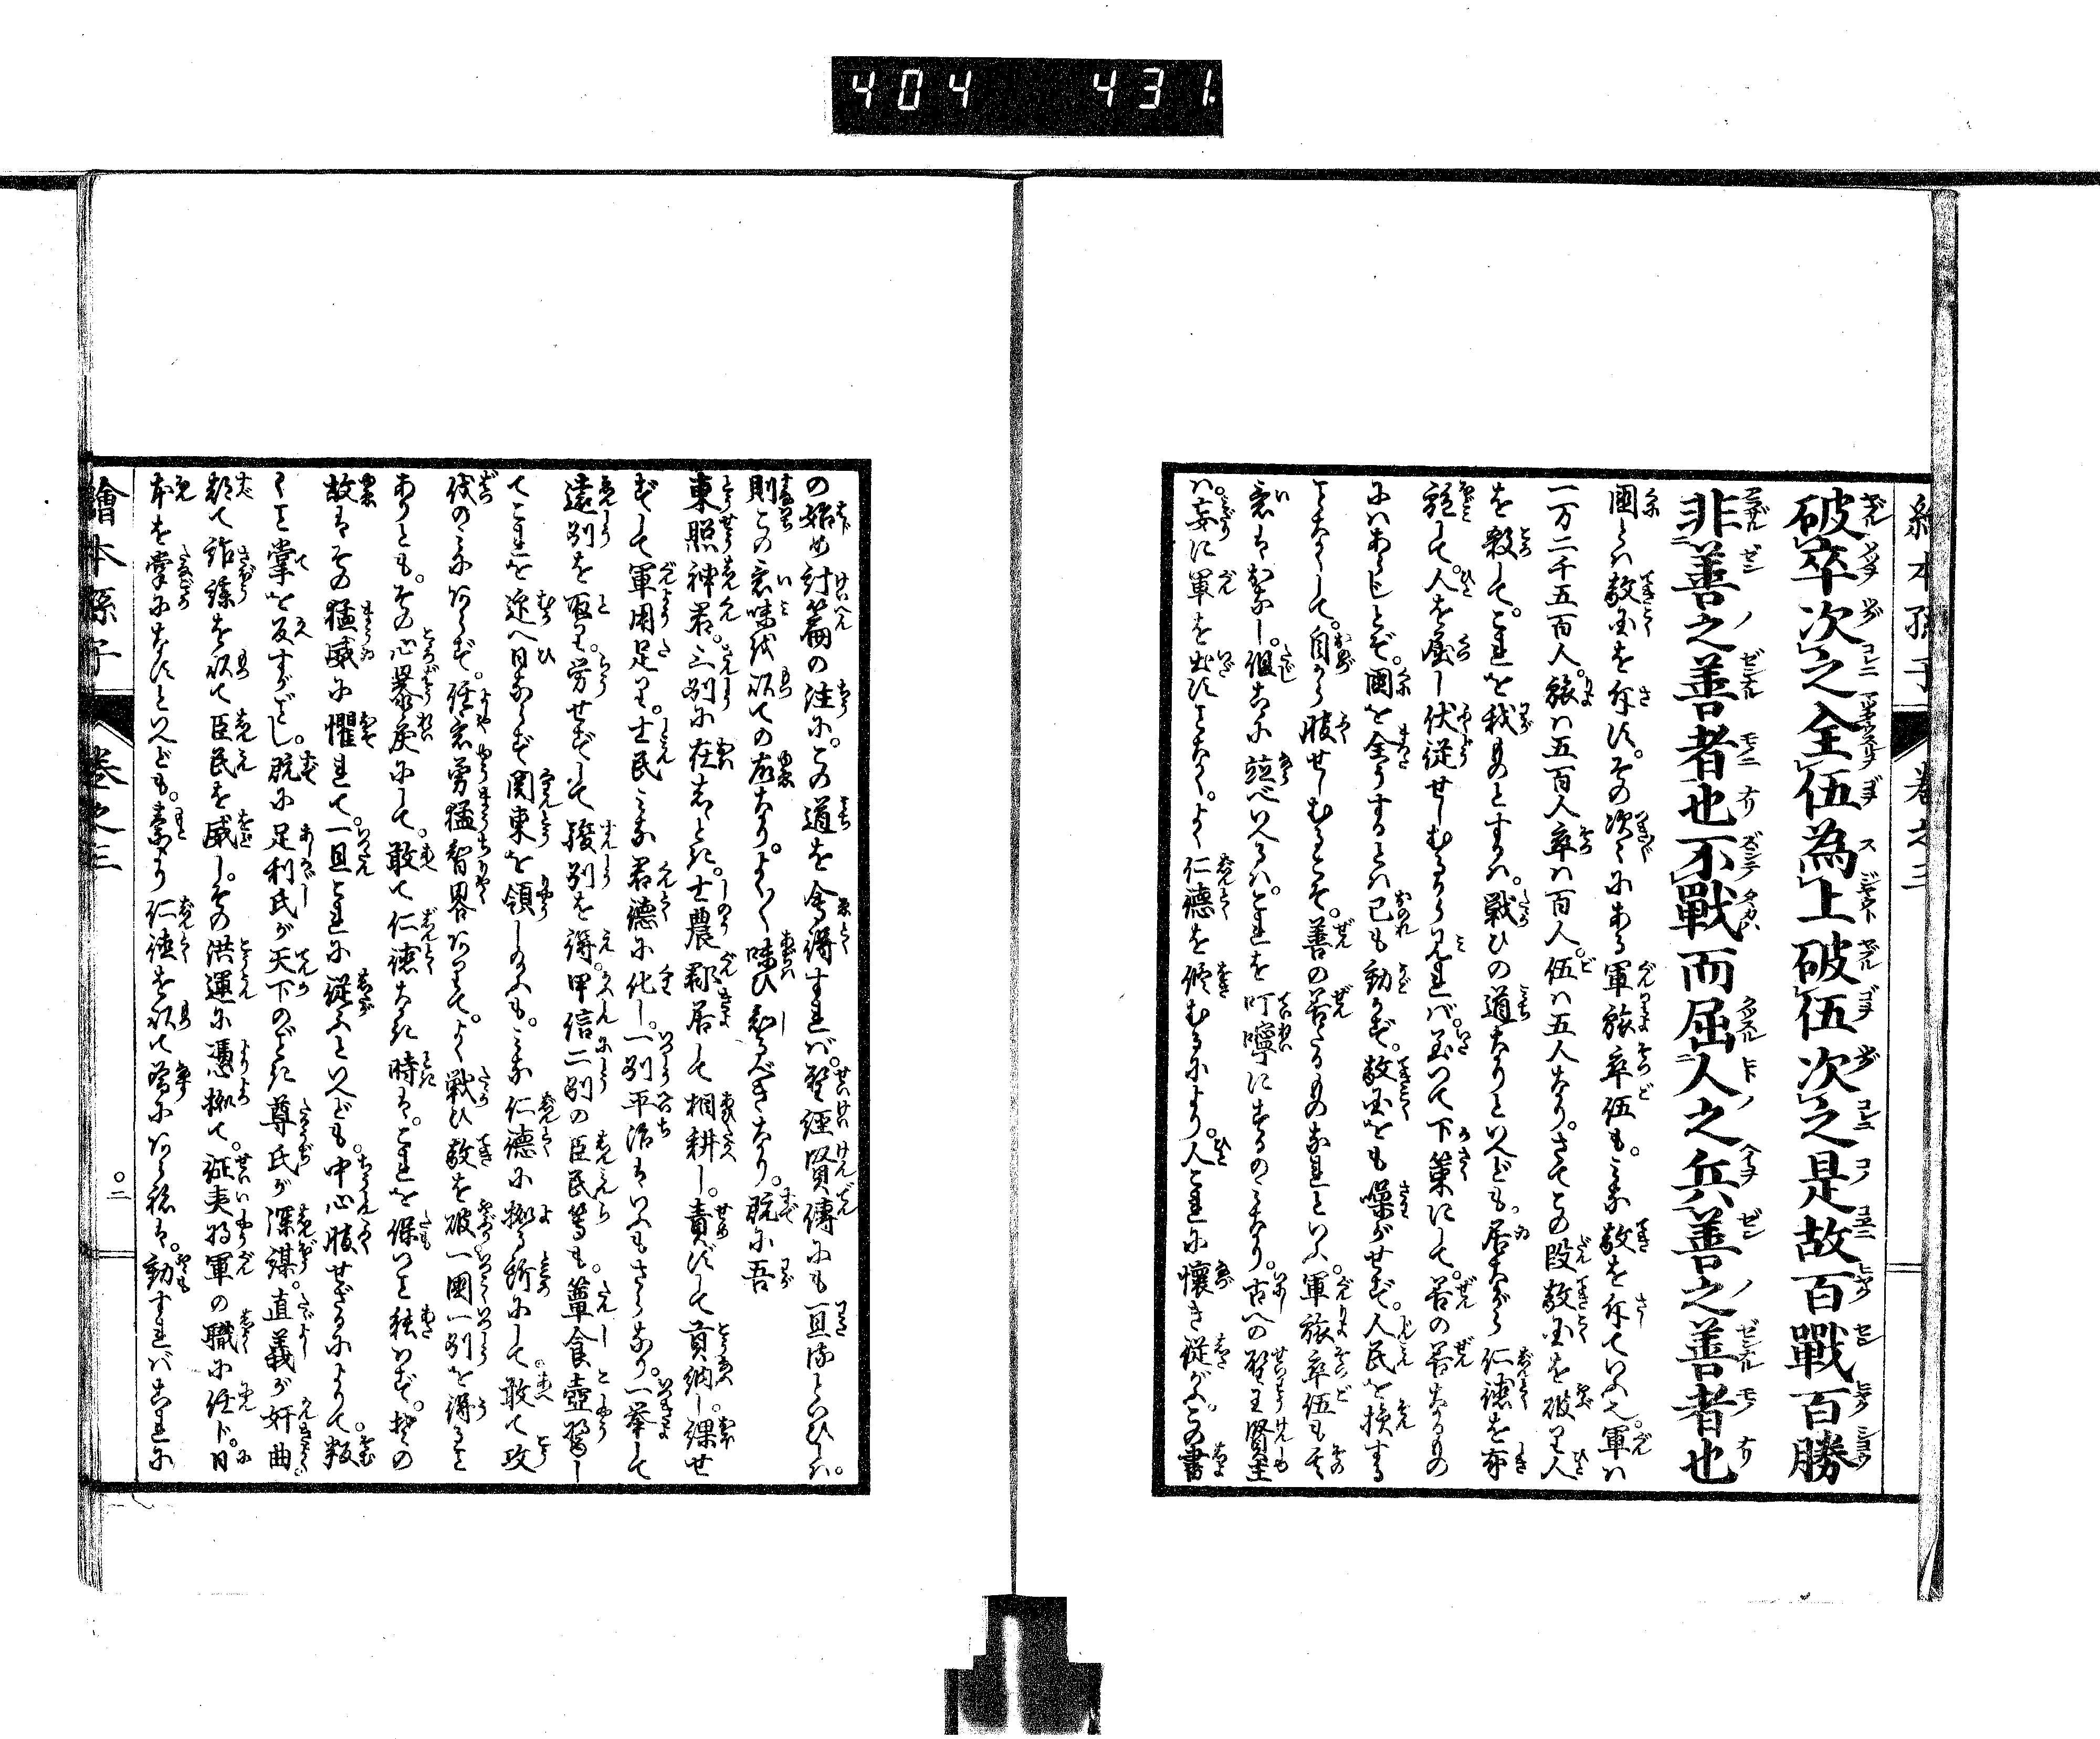 404 431
繪本孫子 卷之三
破卒次之全伍為上破伍次之是故百戰百勝
非善之善者也不戰而屈人之兵善之善者也
國とハ敵國を斥す。その次々にある軍旅卒伍も。みな敵を斥ていふ也。軍ハ
一万二千五百人。旅ハ五百人卒ハ百人。伍ハ五人なり。さてこの段敵國を破り人
を殺して。これを我ものとするハ。戰ひの道なりといへども。居ながら仁德を布
施して。人を屈し伏從せしむるより見れバ。至つて下策にして。善の善なるもの
にハあらじとぞ。國を全うするとハ己も動かず。敵國をも噪がせず。人民を損する
ことなくして。自から服せしむるこそ。善の善たるものなれといふ。軍旅卒伍も其
意はおなし。但だに述べいへるハ。これを叮嚀にするのミなり。古への聖王賢主
ハ。妄に軍を出すことなく。よく仁德を修むるにより。人これに懷き從がふ。この書
の始め計篇の注に。この道を會得すれバ。聖經賢傳にも亘るといひしハ。
則この意味を以ての故なり。よく〱味ひ知るべきなり。既に吾
東照神君。三州に在しとき。士農郡居して相耕し。責ずして貢納し。課せ
ずして軍用足り。士民みな君德に化し。一州平治はいふもさらなり。一擧して
遠州を取り。労せずして駿州を得。甲信二州の臣民等も。簞食壺漿し
てこれを迎へ日ならず関東を領し給ふも。みな仁德に據る所にして。敢て攻
伐のミにあらず。任意勇猛智畧ありて。よく戰ひ敵を破一國一州を得ること
ありとも。その心暴戾にして。敢て仁德なき時は。これを保つこと能ハず。人その
故はその猛威に懼れて。一旦これに從ふといへども。中心服せざるによりて。叛
くこと掌を反すがごとし。既に足利氏が天下のごとき尊氏が深謀。直義が奸曲
都て詐謀を以て臣民を威し。その洪運に憑據て。征夷將軍の職に任ド。日
本を掌になすといへども。素より仁德を以て脩にあらねば。動すれバこれに
繪本孫子 卷之三 〇二